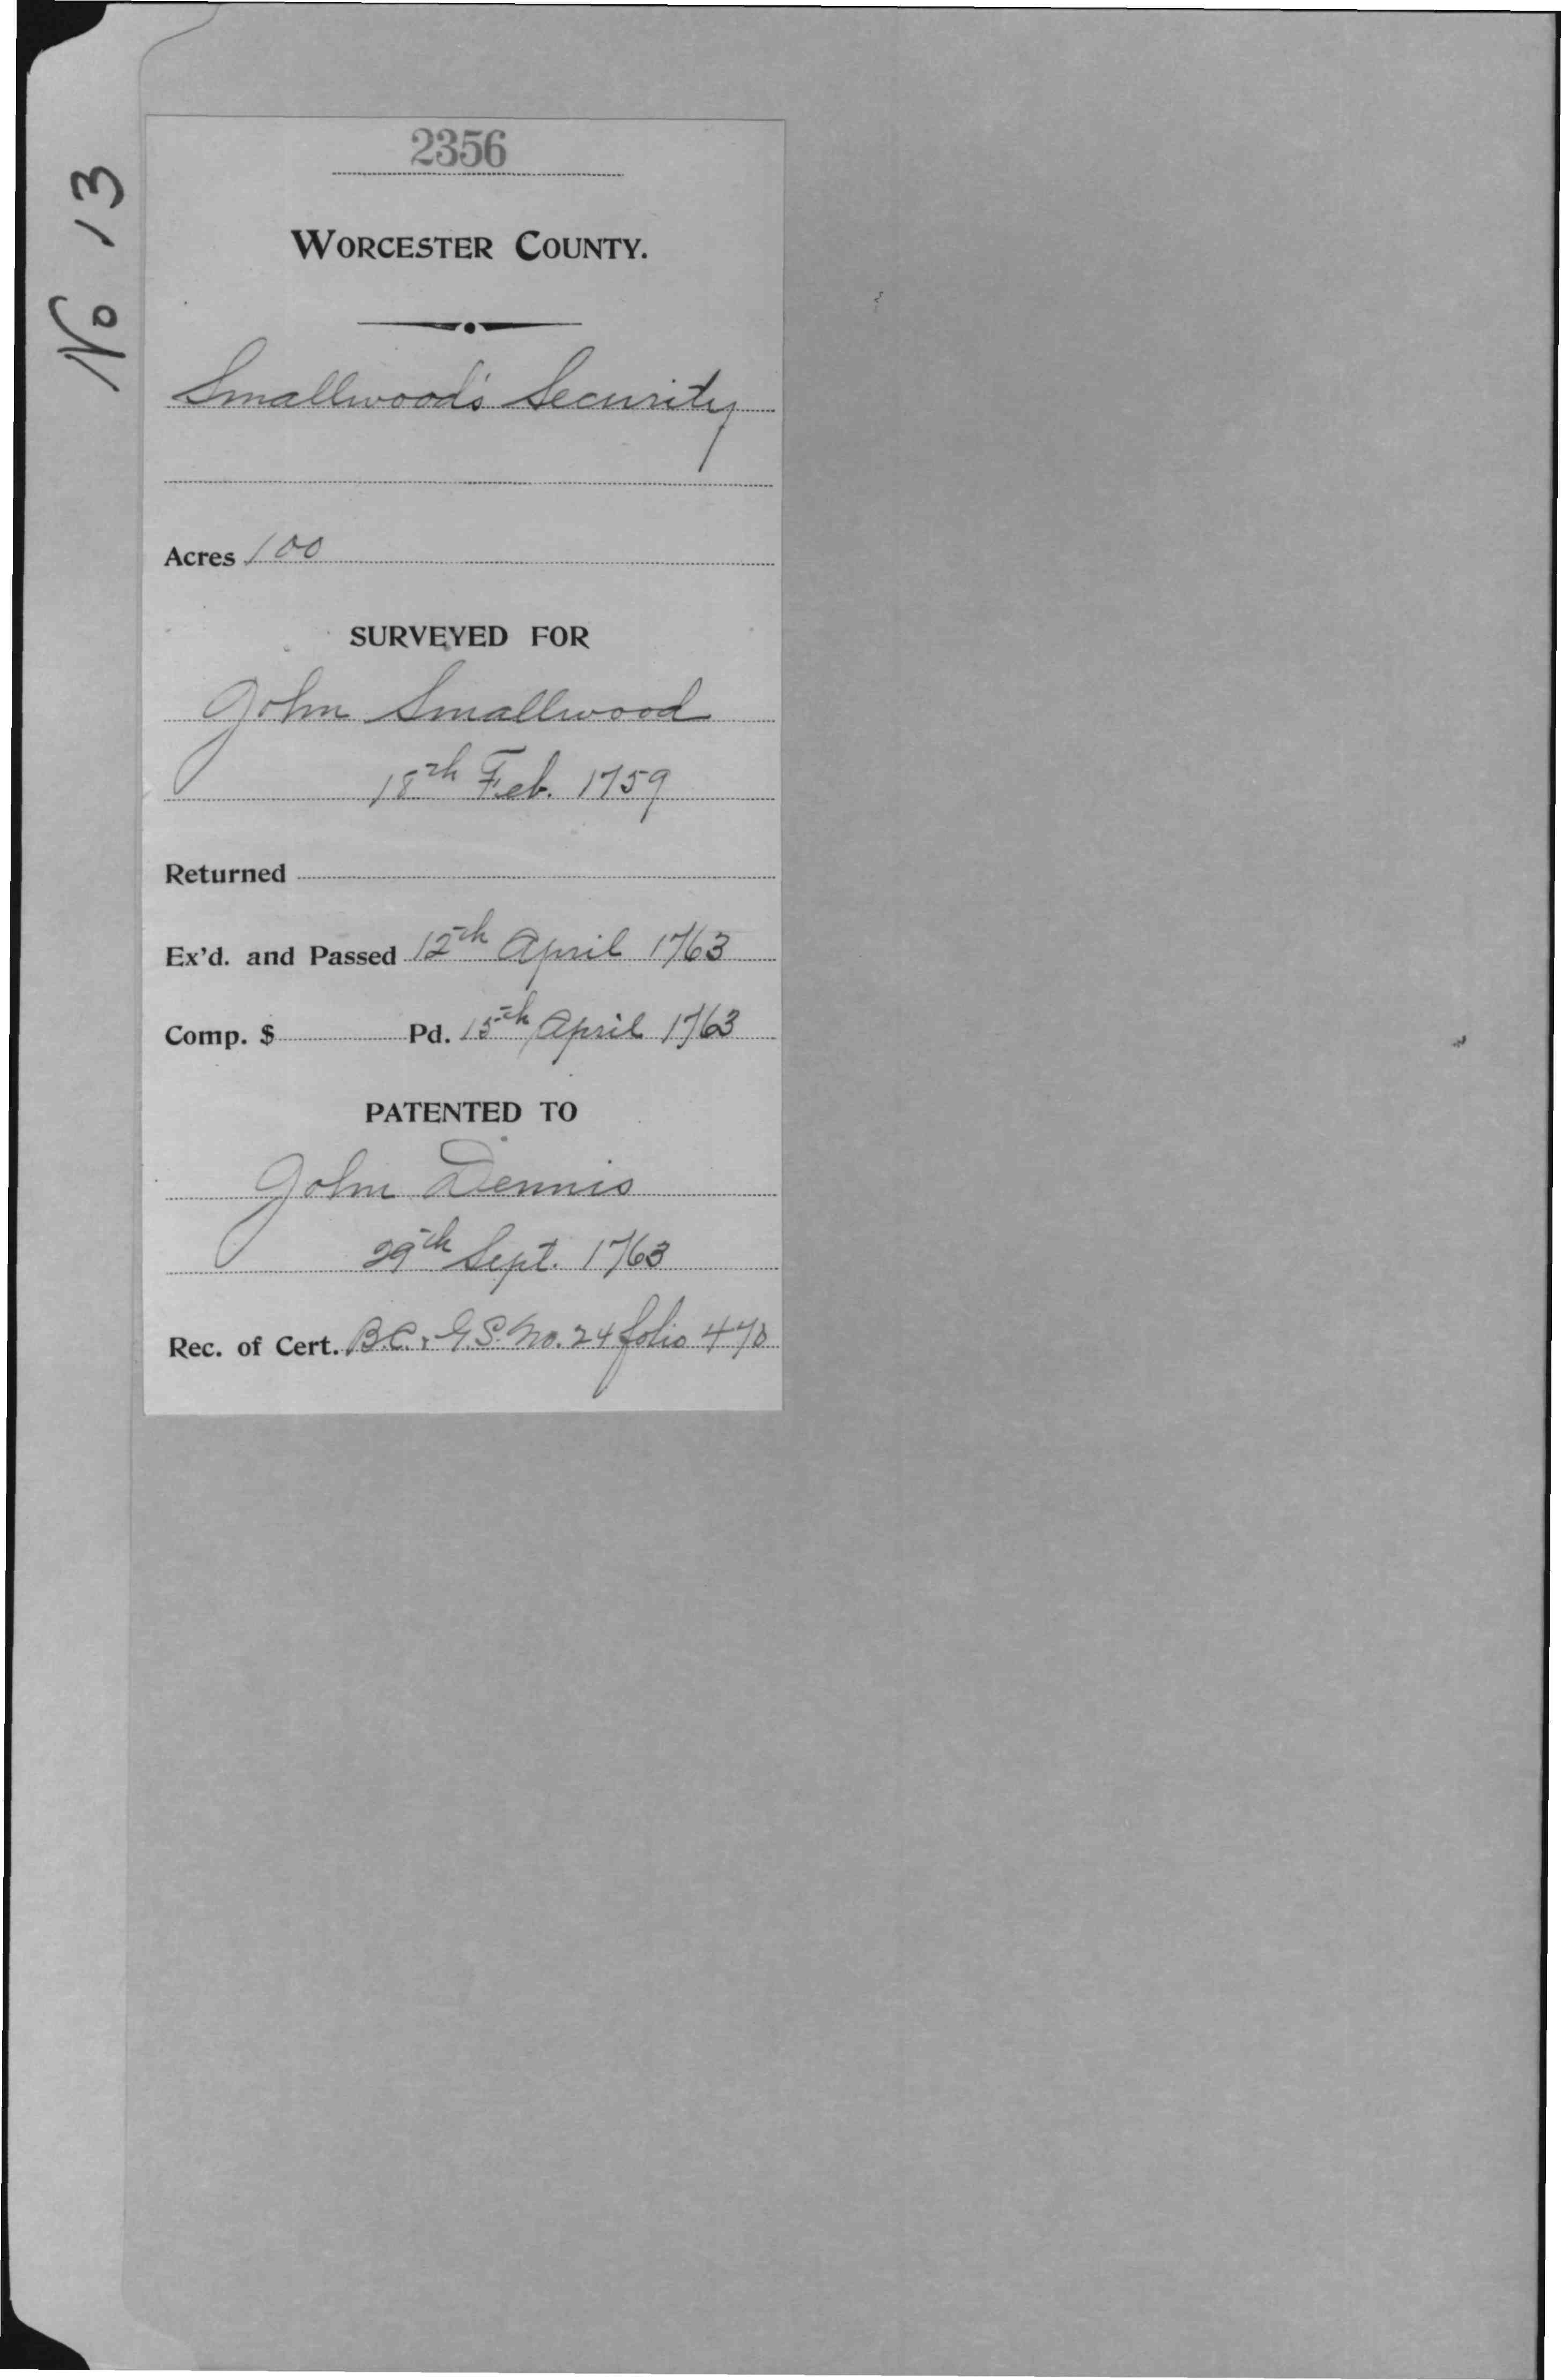 No 13
2356
WORCESTER COUNTY.
Smallwood's Security
Acres 100
SURVEYED FOR
John Smallwood
18th Feb. 1759
Returned
Ex'd. and Passed 12th April 1763
Comp. $ Pd. 15th April 1763
PATENTED TO
John Dennis
29th Sept. 1763
Rec. of Cert. B.C. & G.S. No. 24 folio 470